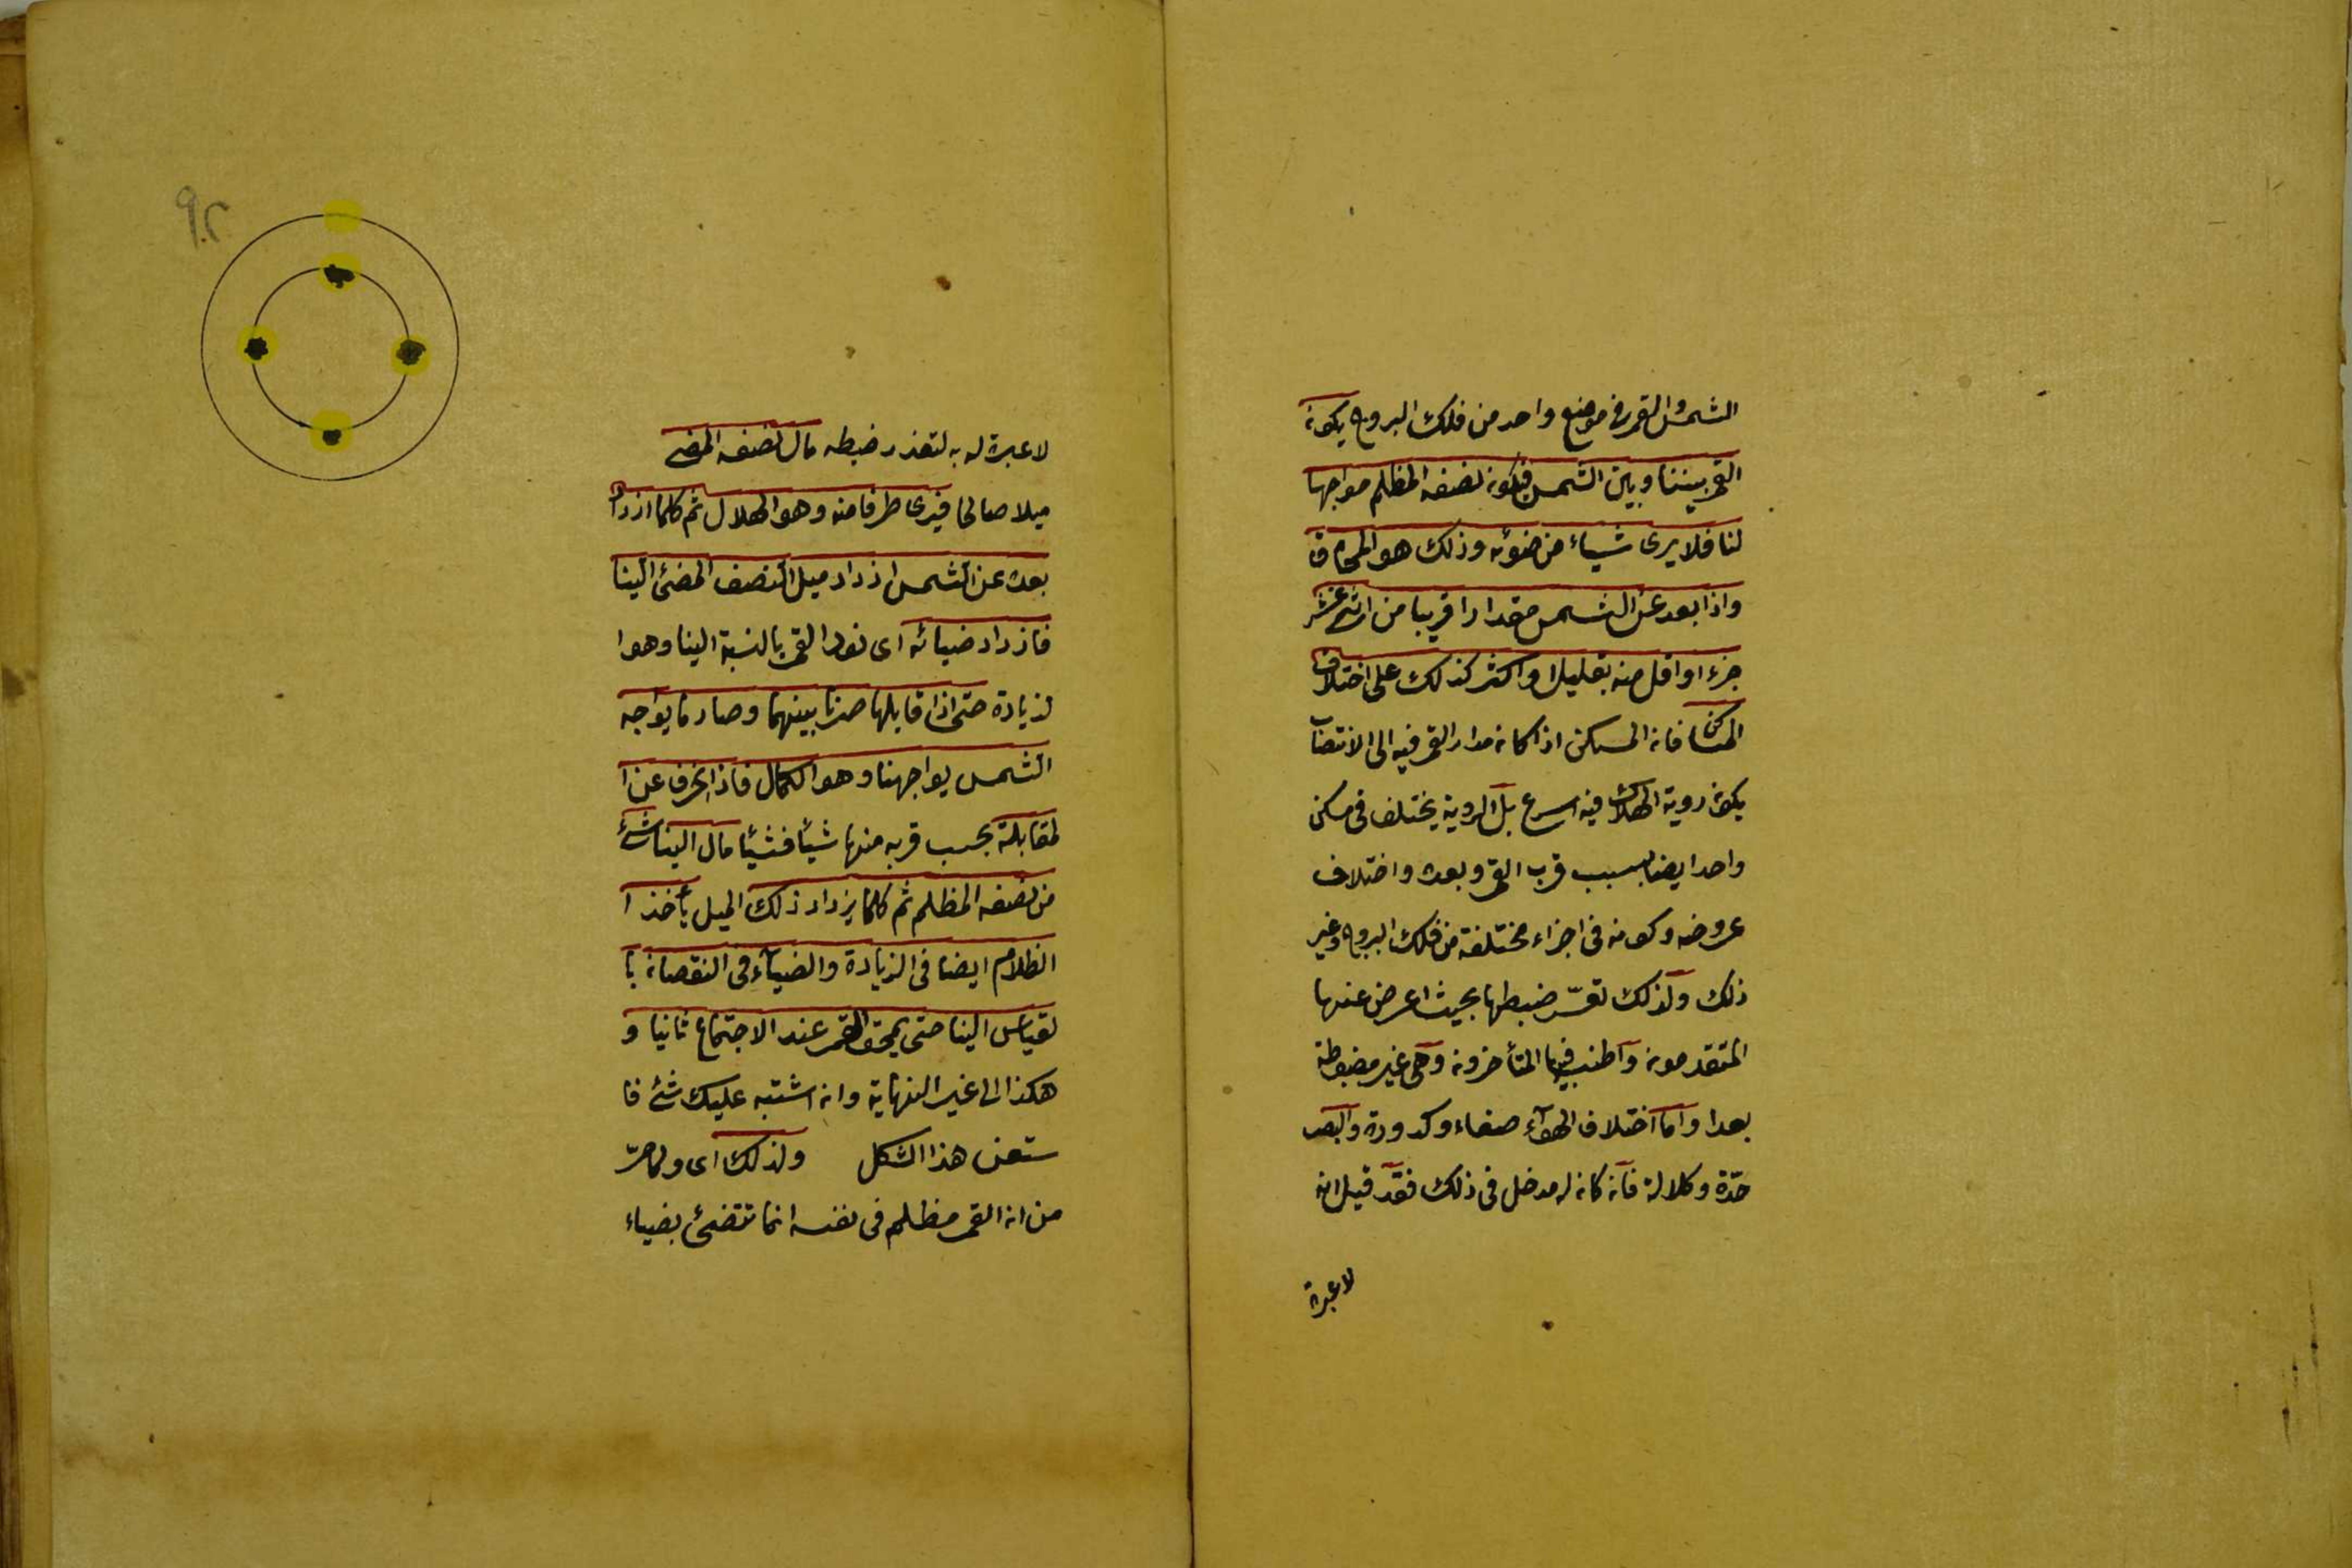 الشمس والقمر فى موضع واحد من فلك البروج يكون
القمر بيننا وبين الشمس فيكون نصفه المظلم مواجها
لنا فلا يرى شيئاء من ضوئه وذلك هو المحاق
واذا بعد عن الشمس مقدارا قريبا من اثنى عشر
جزء او اقل منه بقليل او اكثر كذلك على اختلاف
المساكن فان المسكن اذا كان مدار القمر فيه الى الانتصاب
يكون روية الهلال فيه اسرع بل الروية يختلف فى مسكن
واحد ايضا بسبب قرب القمر وبعده واختلاف
عروضه وكونه فى اجزاء مختلفة من فلك البروج وغير
ذلك ولذلك تعسّر ضبطها بحيث اعرض عنها
المتقدمون واطنب فيها المتأخرون وهى غير مضبوطة
بعدا واما اختلاف الهوآء صفاء وكدورة والبصر
حدّة وكلالة فان كان له مدخل فى ذلك فقد قيل انه
لا عبرة
لا عبرة له به لتعذر ضبطه مال نصفه المضى
ميلا صالحا فيرى طرفا منه وهو الهلال ثم كلما ازداد
بعده عن الشمس ازداد ميل النصف المضئ الينا
فازداد ضيائه اى نور القمر بالنسبة الينا وهو ا
لزيادة حتى اذا قابلها صرنا بينهما وصار ما يواجه
الشمس يواجهنا وهو الكمال فاذا انحرف عن ا
لمقابلة بحسب قربه منها شيئا فشيئا مال الينا شئ
من نصفه المظلم ثم كلما يزداد ذلك الميل يأخذ ا
لظلام ايضا فى الزيادة والضيآء فى النقصان با
لقياس الينا حتى يمحق القمر عند الاجتماع ثانيا و
هكذا الى غير النهاية وان اشتبه عليك شئ فا
ستعن هذا الشكل ولذلك اى ولما مرّ
من ان القمر مظلم فى نفسه انما تتضئ بضياء